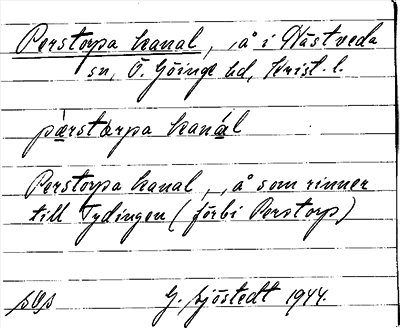 Perstorpa kanal, ,å i Västveda
sn, Ö. Göinge hd, Krist. l.
pærstærpa kanál
Perstorpa kanal, ,å som rinner
till Tydingen (förbi Perstorp)
G. Sjöstedt 1944.